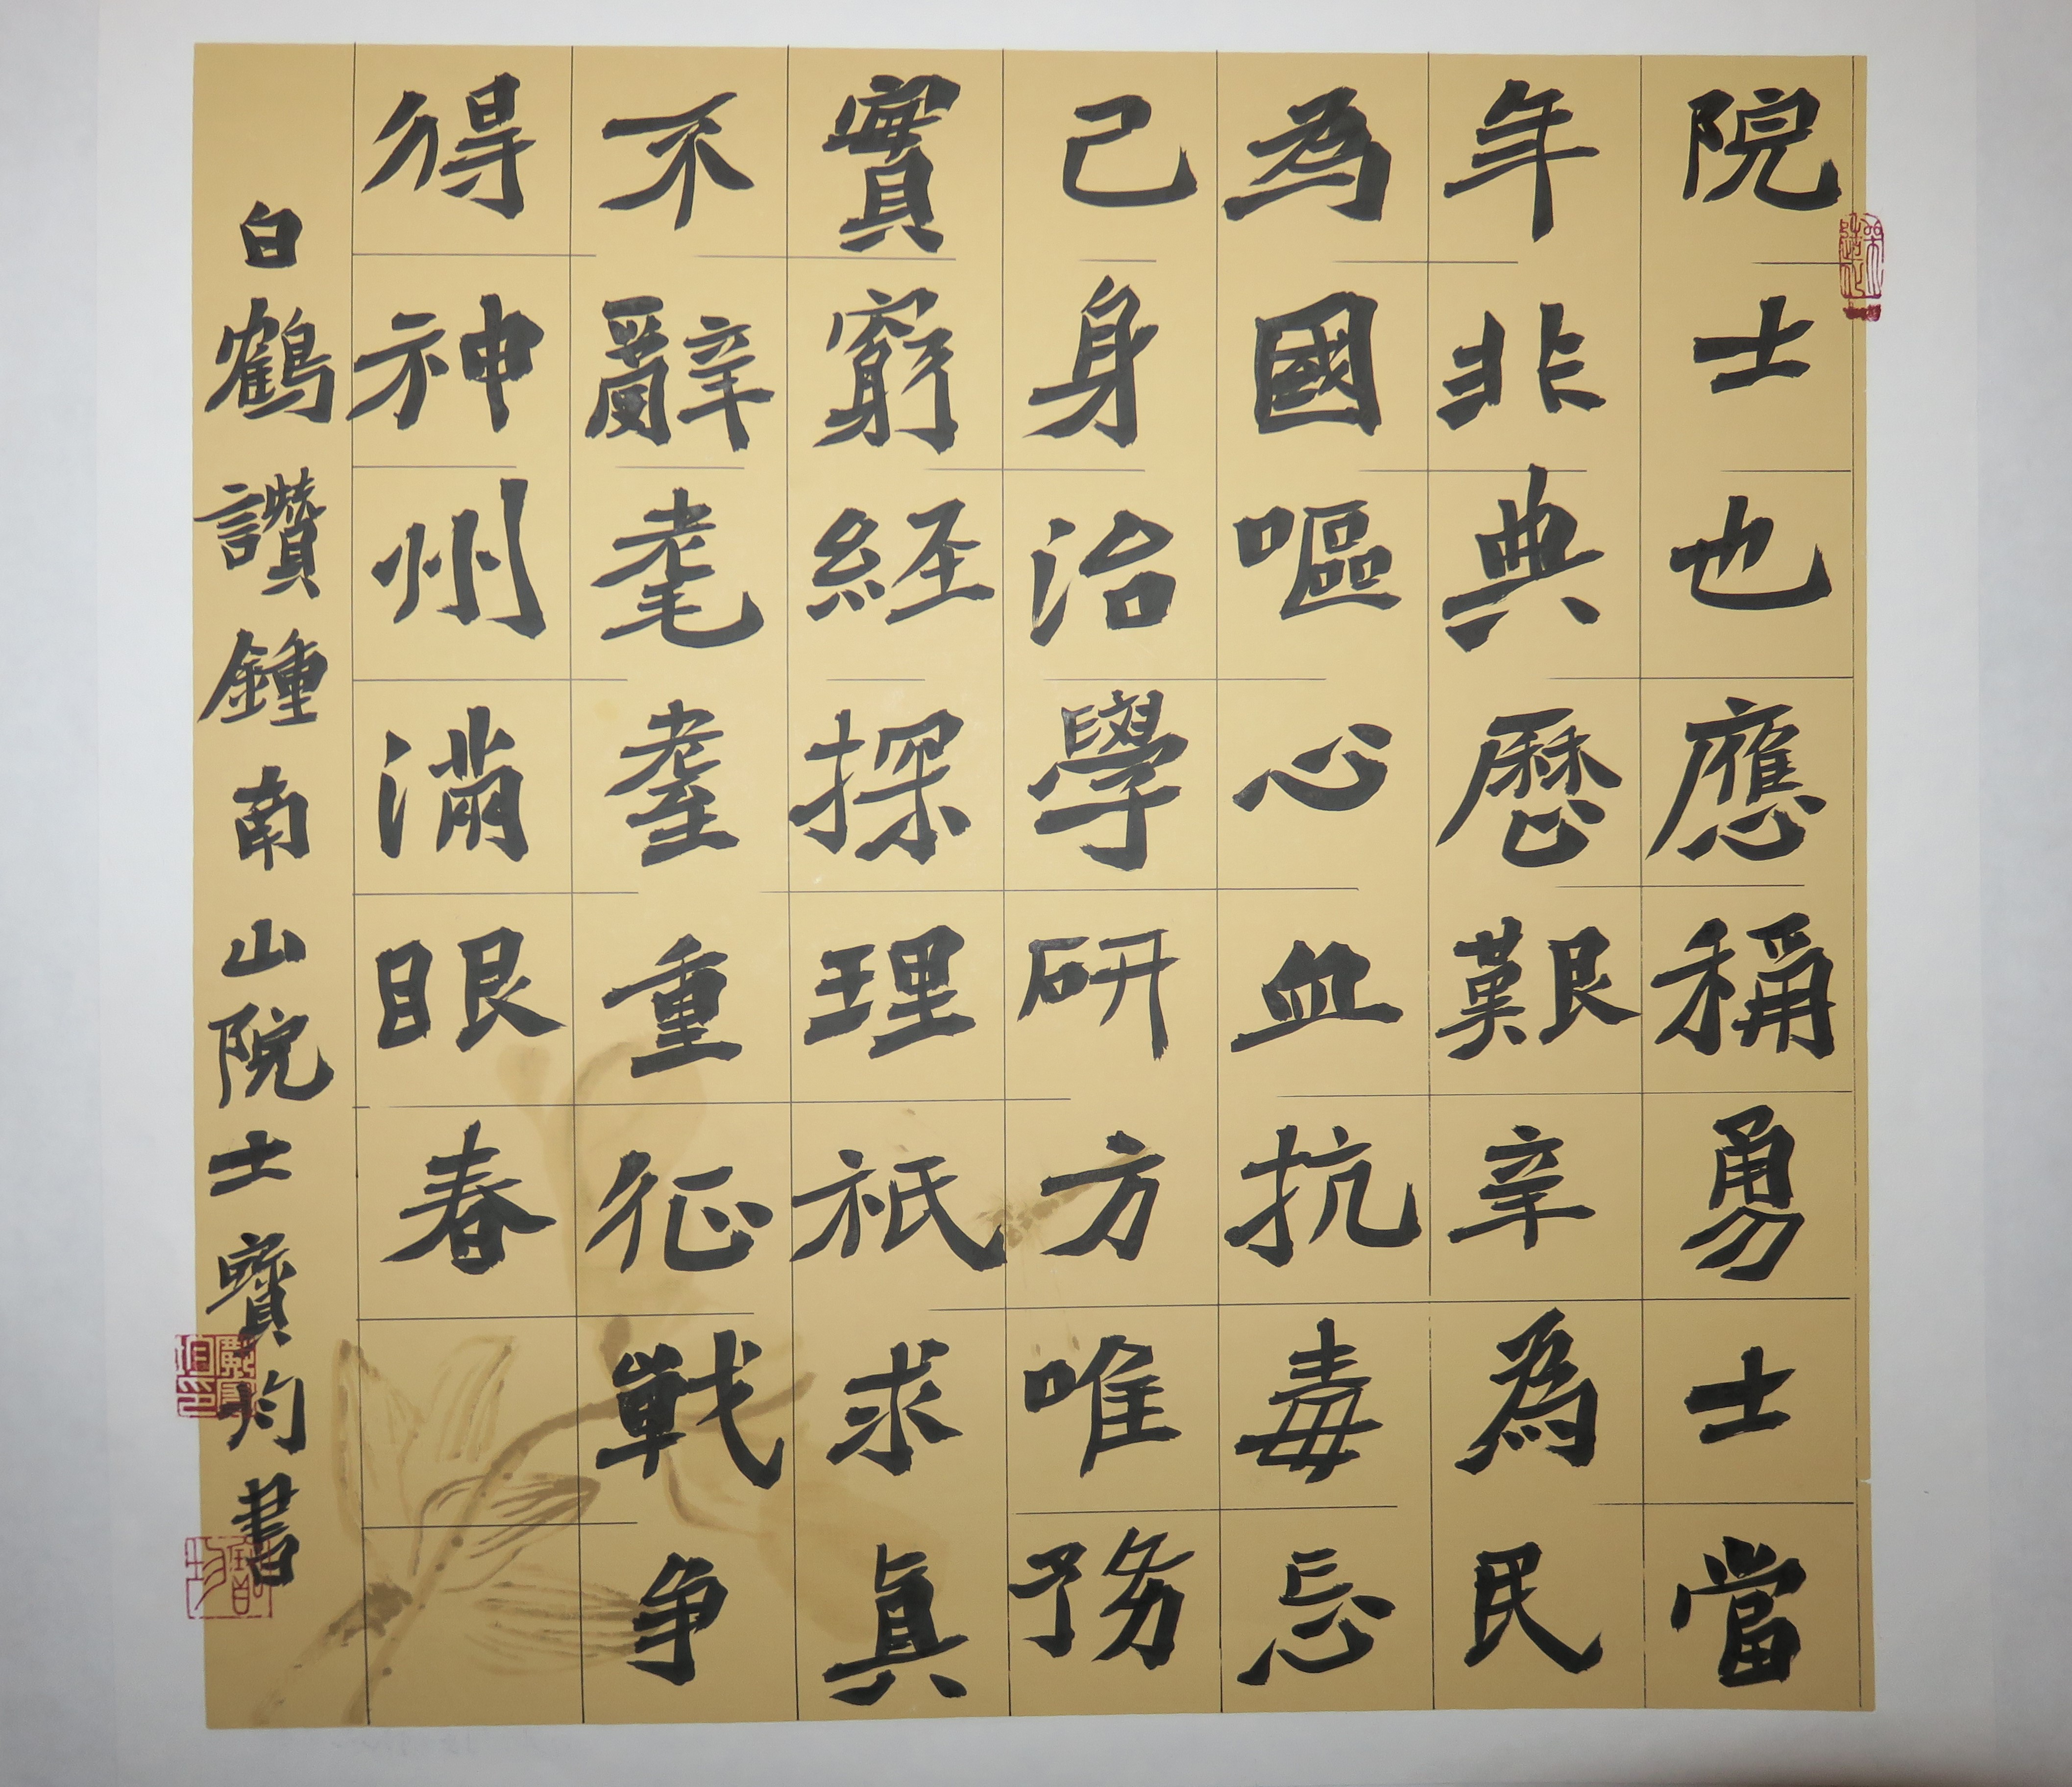 院士也應稱勇士當
年非典歷艱辛為民
為國嘔心血抗毒忘
己身治學研方唯務
實窮經探理祇求真
不辭耄耋重征戰爭
得神州滿眼春
白鶴讚鍾南山院士寶均書